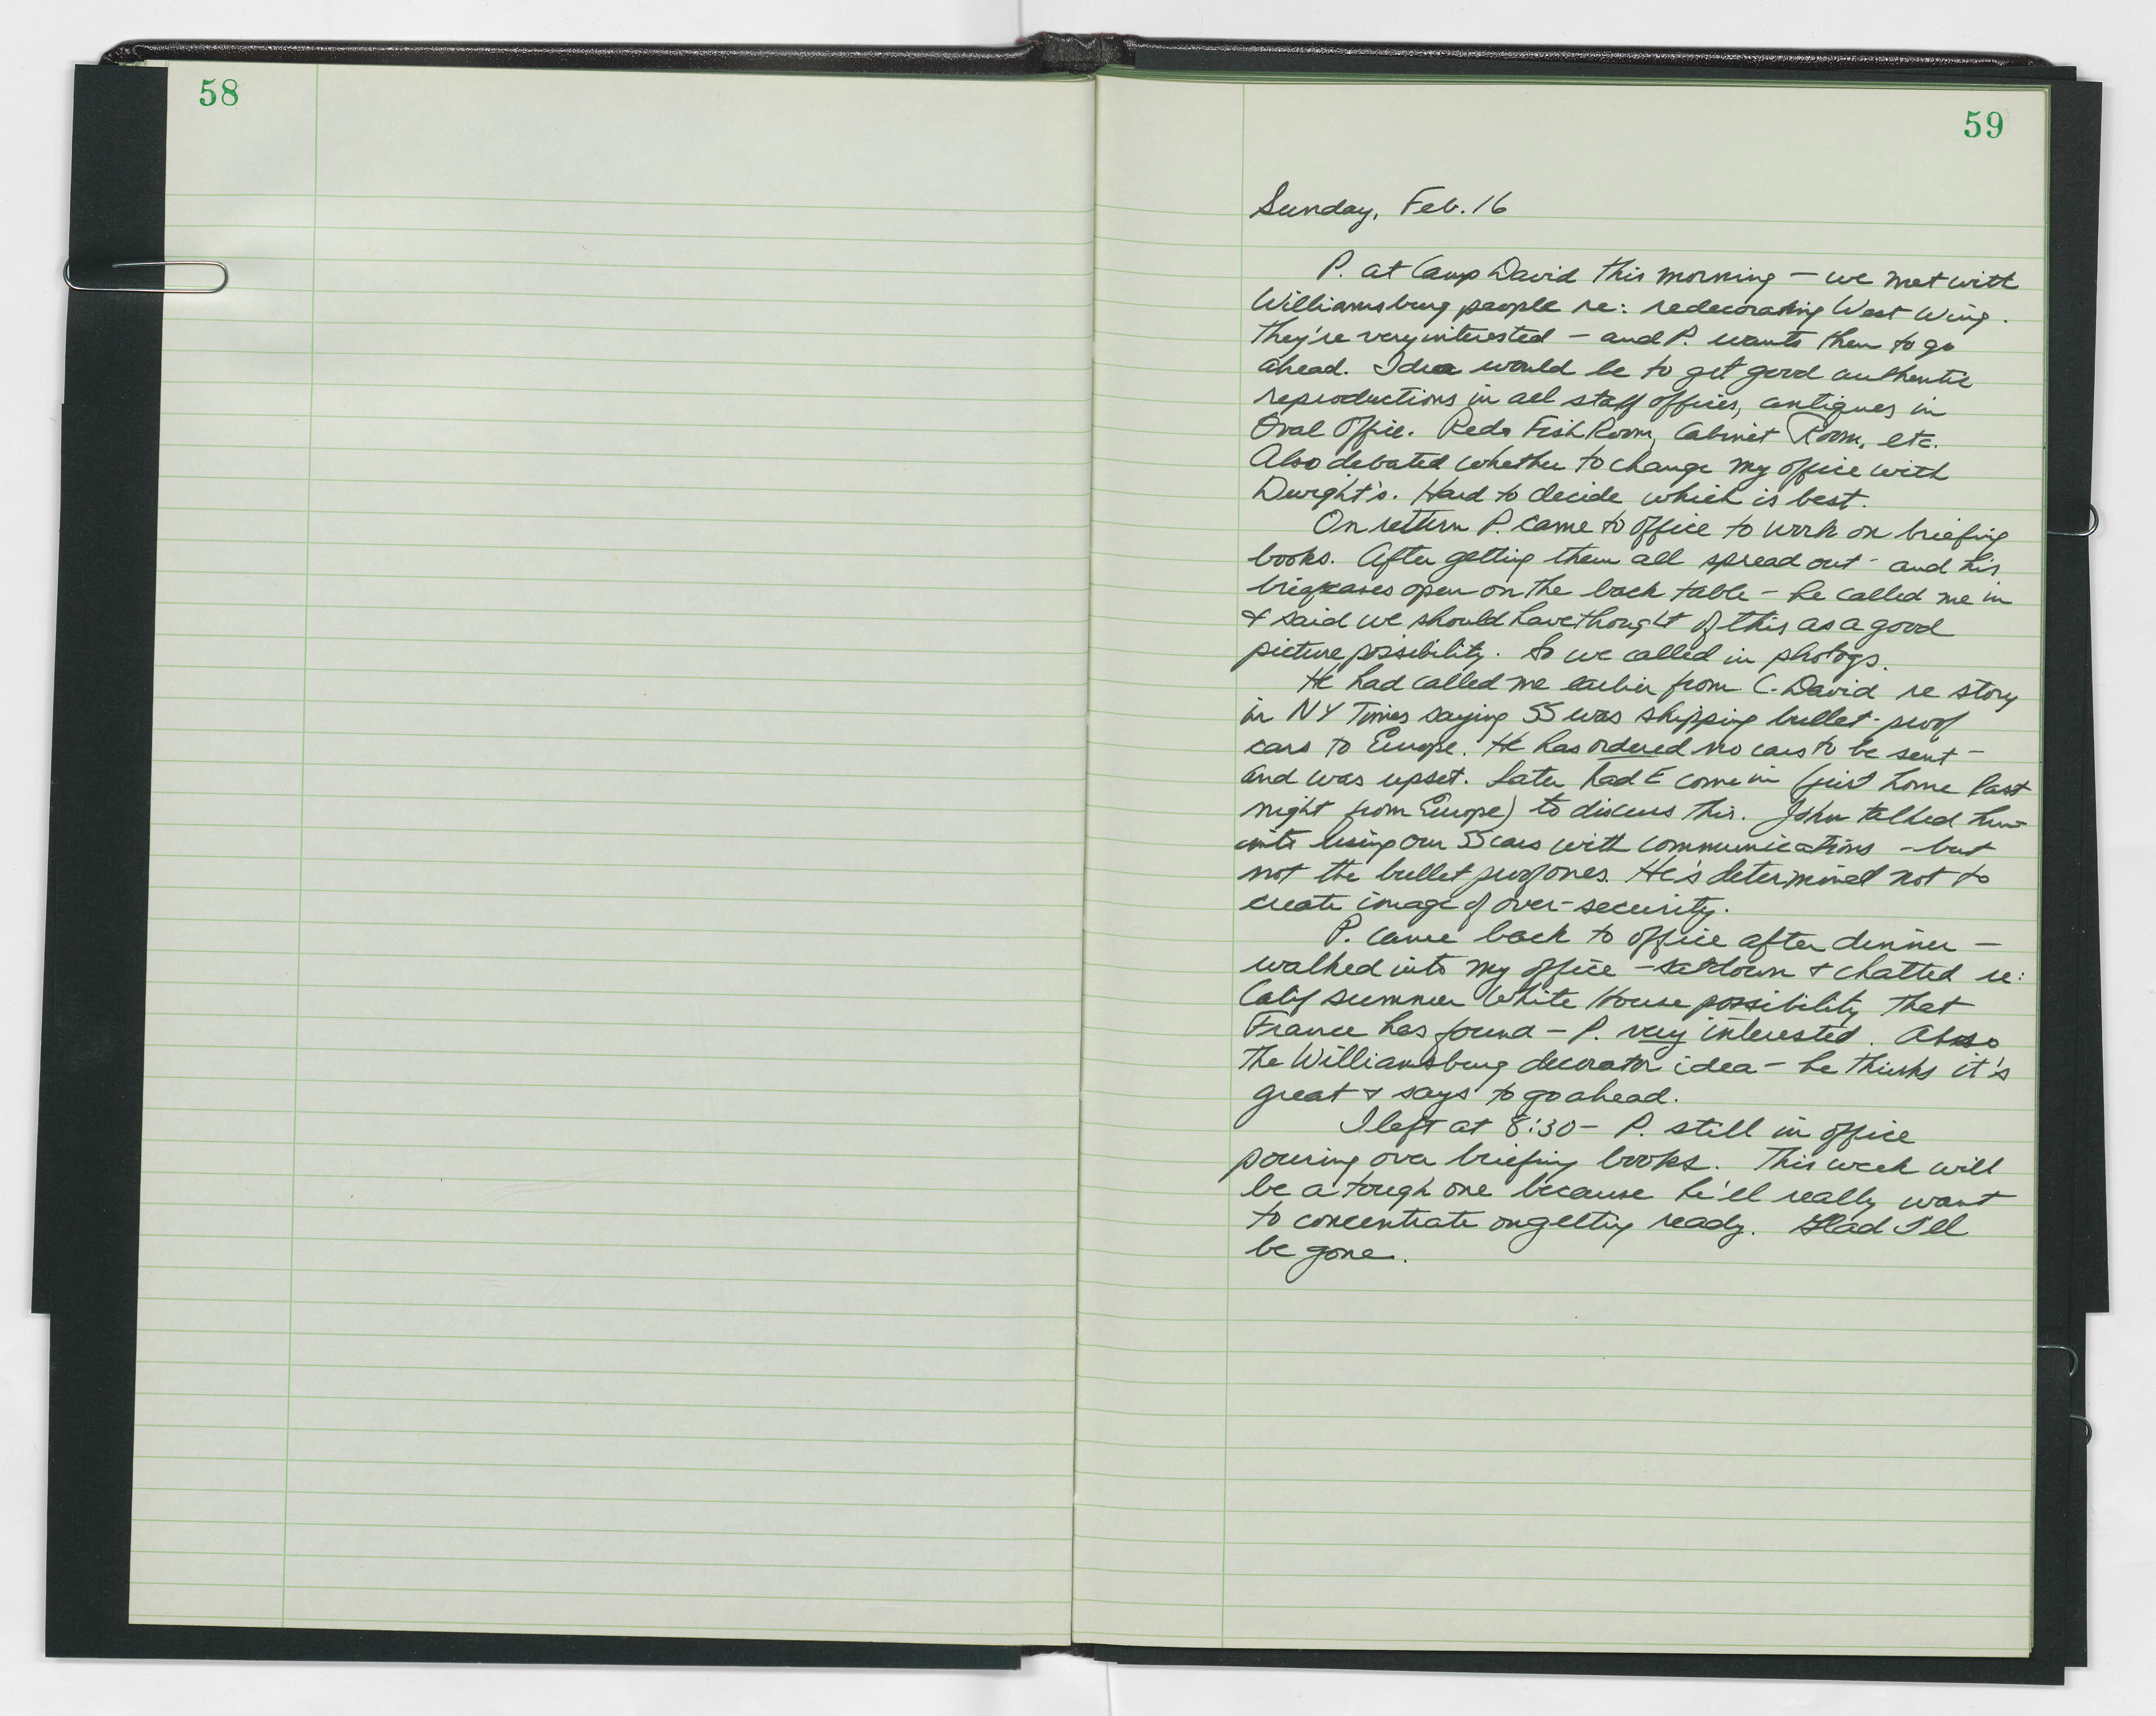 58
59
Sunday, Feb. 16
P. at Camp David this morning — we met with
Williamsburg people re: redecorating West Wing.
They're very interested — and P. wants them to go
ahead. Idea would be to get good authentic
reproductions in all staff offices, antiques in
Oval Office. Redo Fish Room, Cabinet Room, etc.
Also debated whether to change my office with
Dwight's. Hard to decide which is best.
On return P. came to office to work on briefing
books. After getting them all spread out - and his
briefcases open on the back table - he called me in
& said we should have thought of this as a good
picture possibility. So we called in photogs.
He had called me earlier from C. David re story
in NY Times saying SS was shipping bullet-proof
cars to Europe. He has ordered no cars to be sent —
and was upset. Later had E come in (just home last
night from Europe) to discuss this. John talked him
into using our SS cars with communications - but
not the bullet proof ones. He's determined not to
create image of over-security.
P. came back to office after dinner —
walked into my office - sat down & chatted re:
Calif summer White House possibility that
France has found — P. very interested. Also
the Williamsburg decorator idea — he thinks it's
great & says to go ahead.
I left at 8:30 — P. still in office
pouring over briefing books. This week will
be a tough one because he'll really want
to concentrate on getting ready. Glad I'll
be gone.